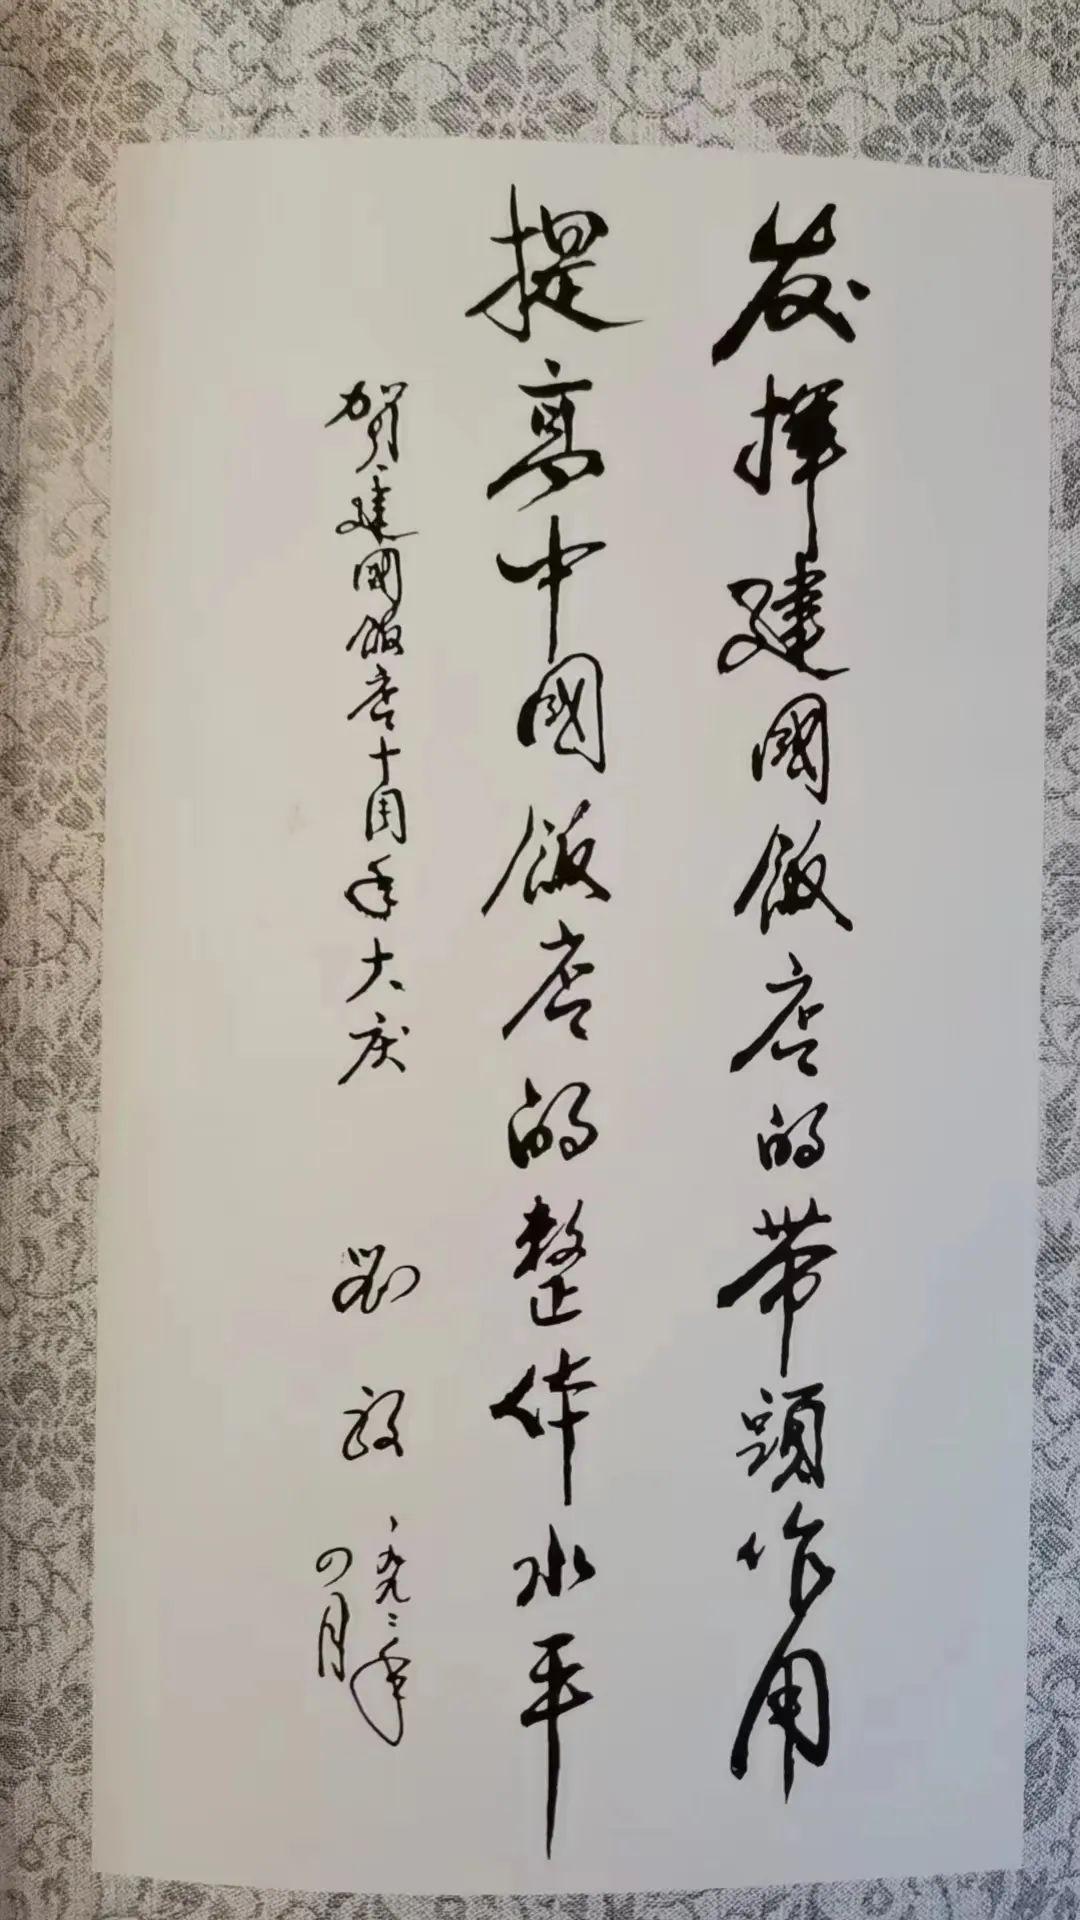 发挥建國飯店的带頭作用
提高中國飯店的整体水平
贺建國飯店十周年大庆
劉毅
一九九二年
四月